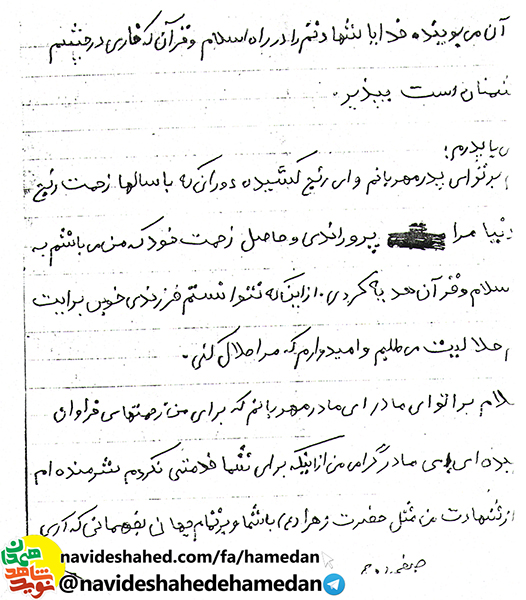 آن می پوینده خدایا شهادتم را در راه اسلام و قرآن که خاری در چشم
شمنان است بپذیر.
بابا پدرم؛
بر تو ای پدر مهربانم و ای رنج کشیده دوران که با سالها زحمت رنج
دنیا مرا پروراندی و حاصل زحمت خود که من می باشم به
سلام و قرآن هدیه کردی. از اینکه نتوانستم فرزندی خوبی برایت
حلالیت می طلبم و امیدوارم که مرا حلال کنی.
لام بر تو ای مادر ای مادر مهربانم که برای من زحمتهای فراوان
یده ای مادر گرامی من از اینکه برای شما خدمتی نکردم شرمنده ام
از شهادت من مثل حضرت زهرا (س) باشما و بر تمام جهان بفهمانی که آری
صفحه
navideshahed.com/fa/hamedan
@navideshahedehamedan
نوید شاهد همدان